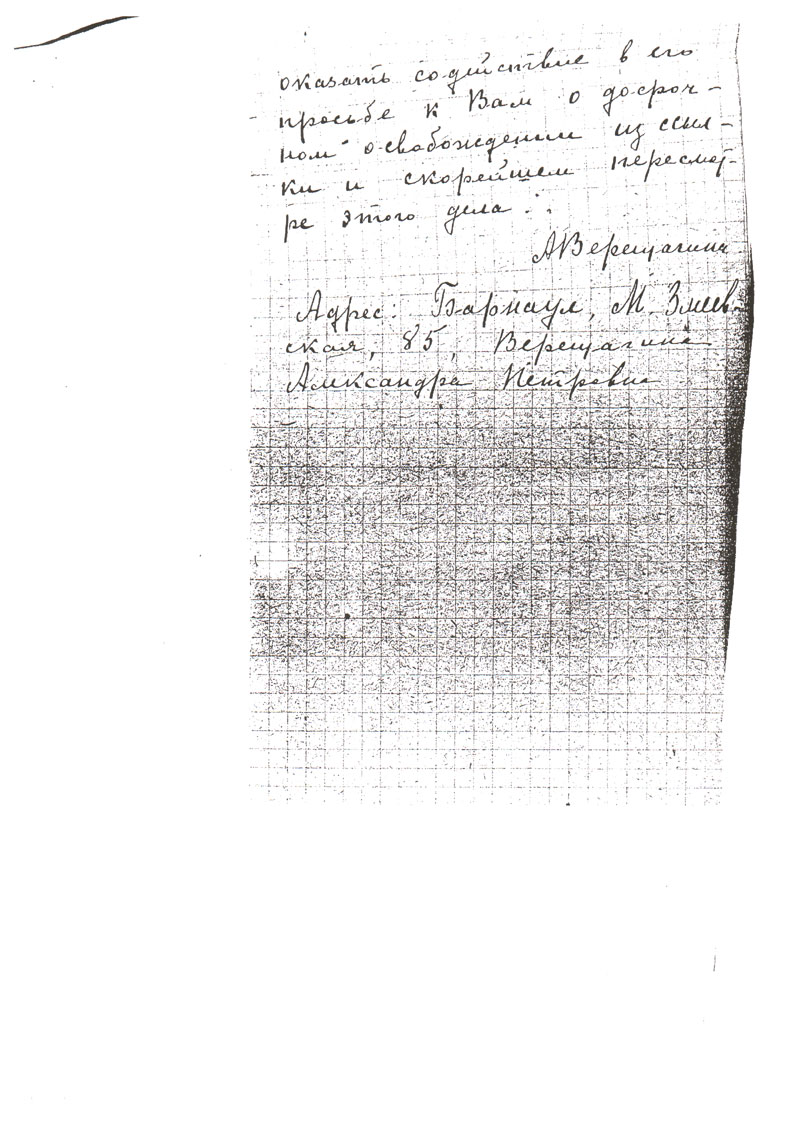 оказать содействие в его
просьбе к Вам о досроч-
ном освобождении из ссыл-
ки и скорейшем пересмот-
ре этого дела.
АВерещагина
Адрес: Барнаул, М. Змеев-
ская, 85, Верещагина
Александра Петровна